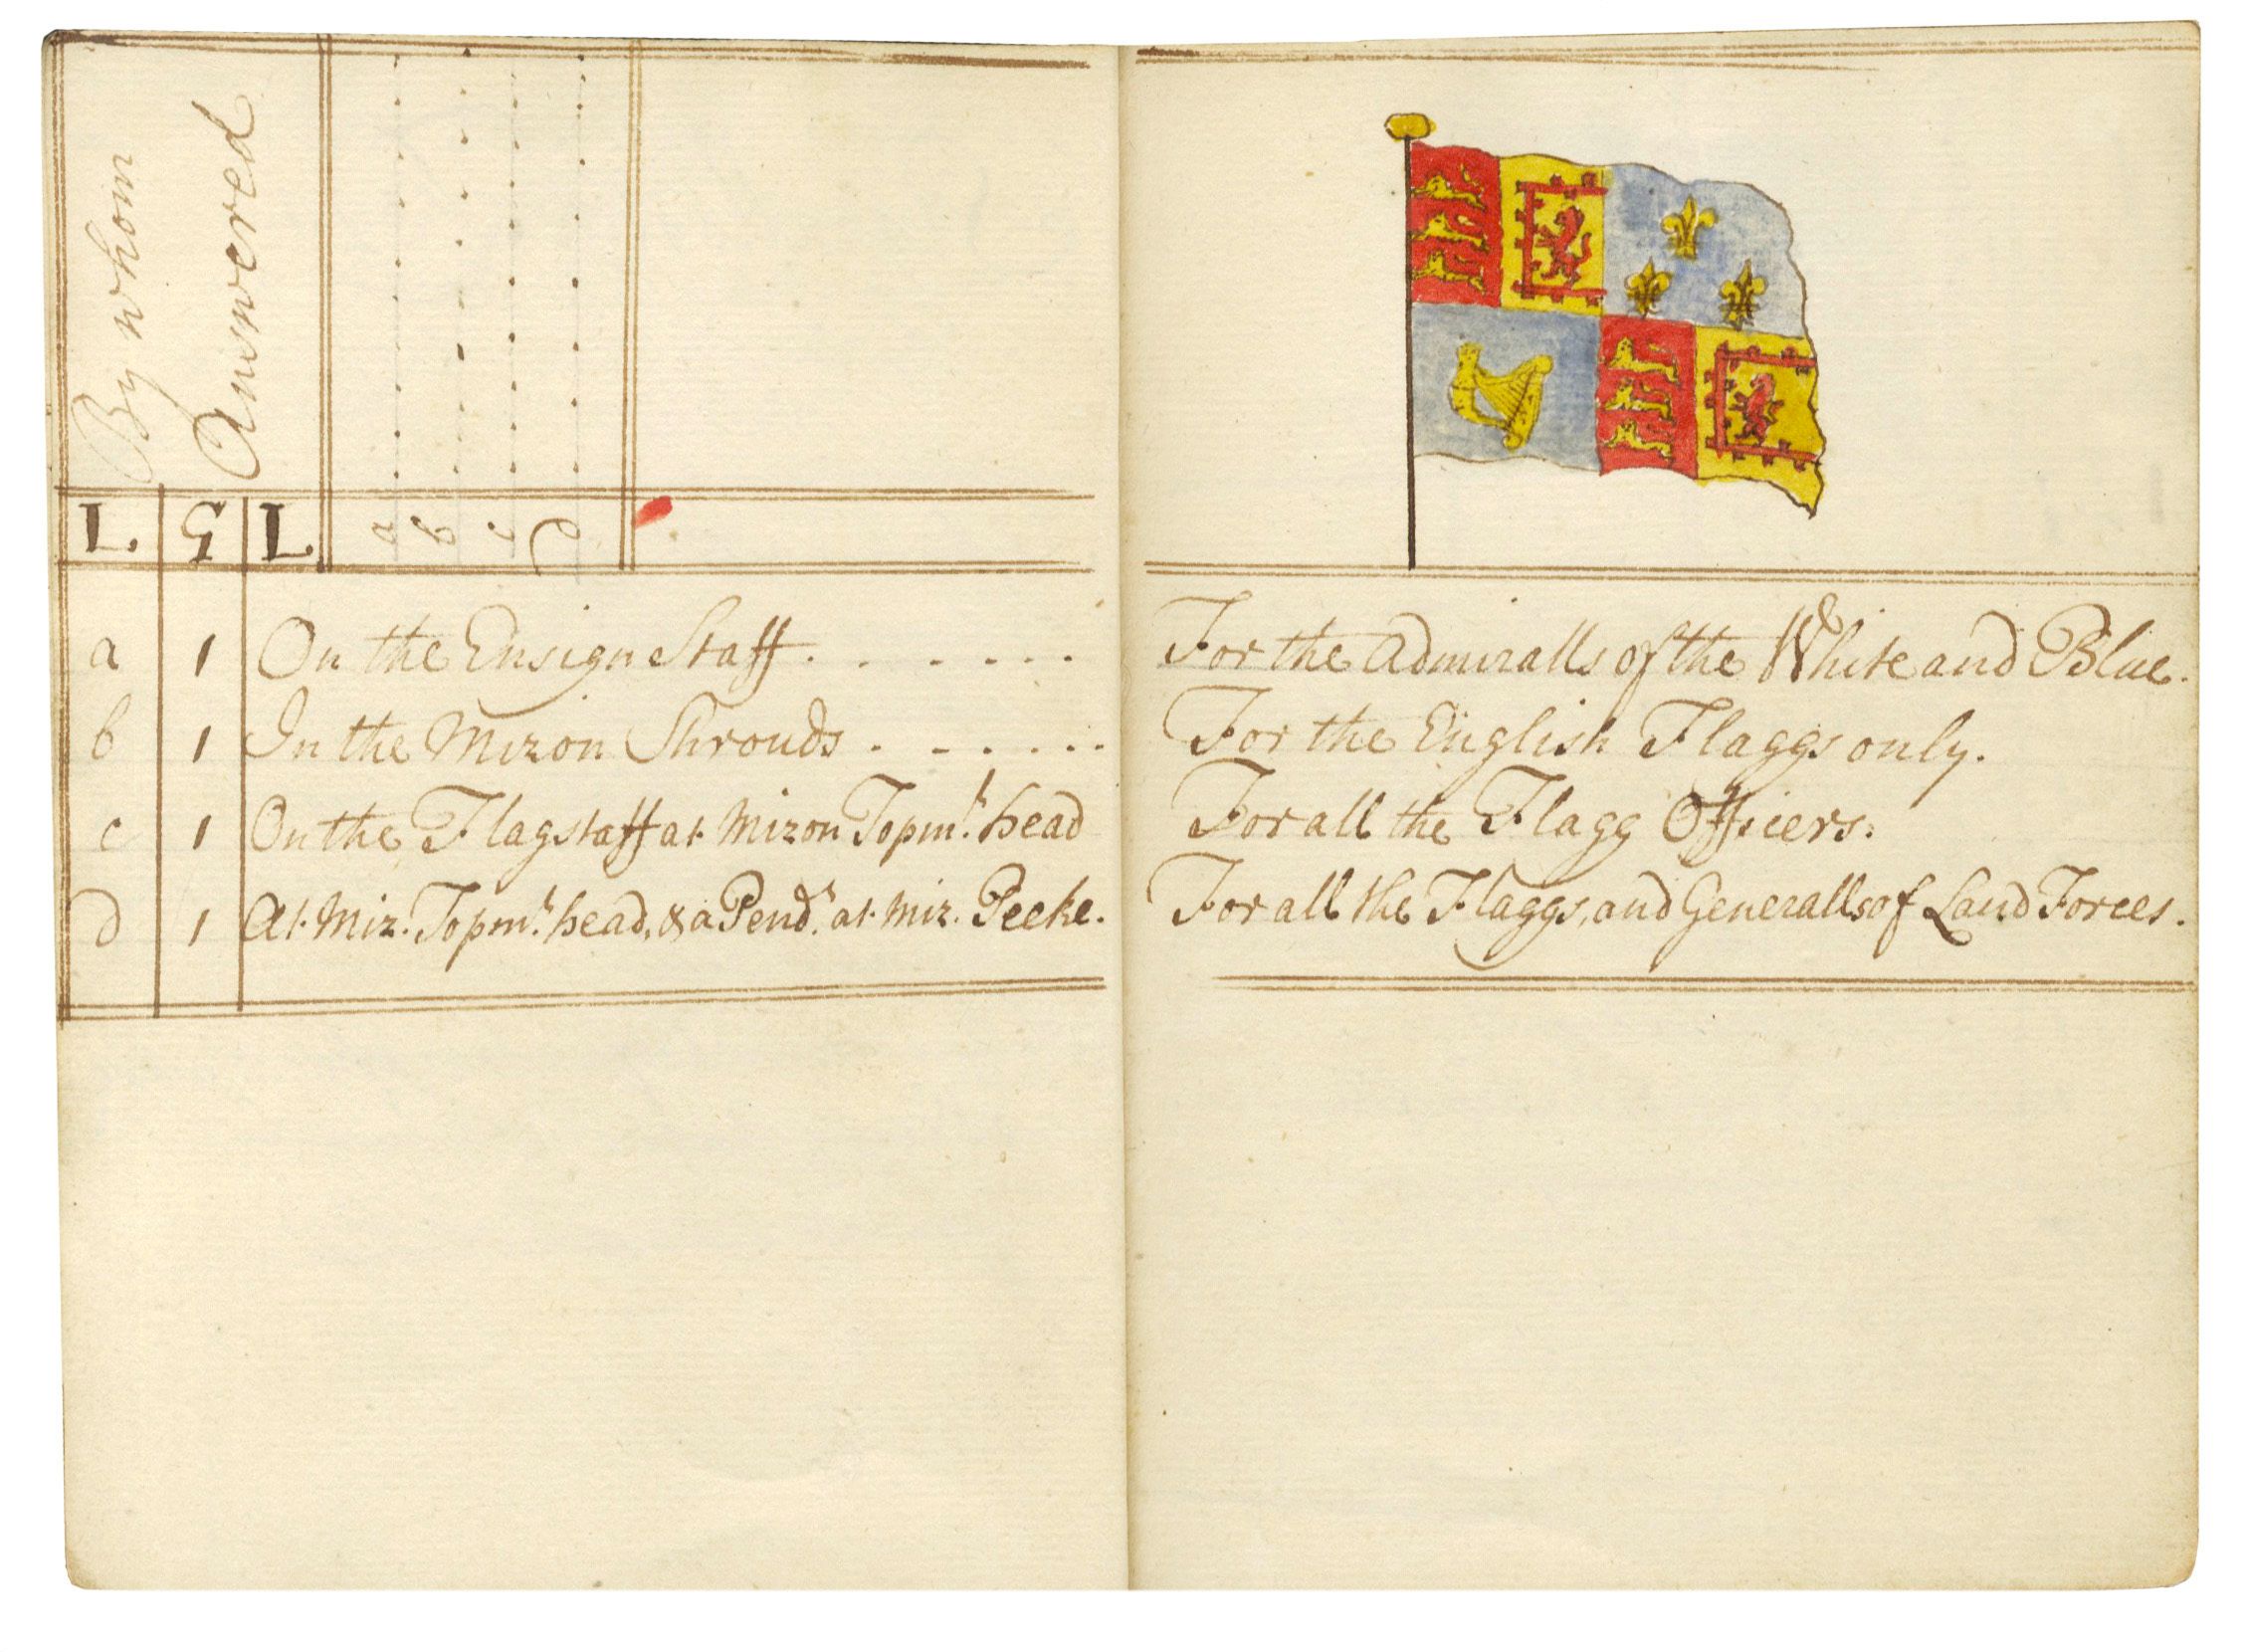 By whom
Answered
L. G L
a b c d
a 1 On the Ensign Staff . . . . . . For the Admiralls of the White and Blue.
b 1 In the Mizon Shrouds . . . . . . For the English Flaggs only.
c 1 On the Flagstaff at Mizon Topmt. head For all the Flagg Officers.
d 1 At Miz. Topmt. head, & a Pendt. at Miz. Peeke. For all the Flaggs, and Generalls of Land Forces.